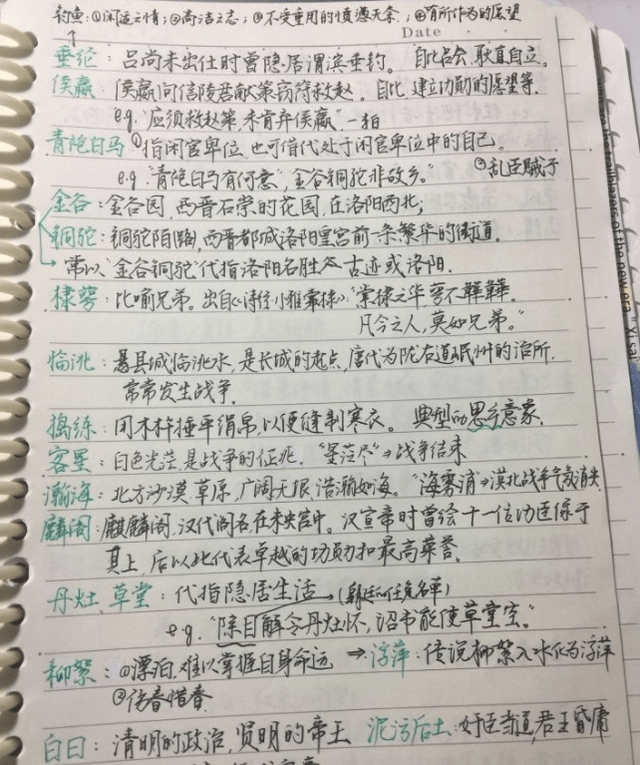 钓鱼：①闲适之情；②高洁之志；③不受重用的愤懑无奈；④有所作为的愿望
Date
垂纶：吕尚未出仕时曾隐居渭滨垂钓。自比吕尚,耿直自立。
侯嬴：侯嬴向信陵君献策窃符救赵。自比,建立功勋的愿望等.
e.g. "应须救赵策,未肯弃侯嬴".—李白
青袍白马：①指闲官卑位,也可借代处于闲官卑位中的自己。
e.g. "青袍白马有何意,金谷铜驼非故乡。" ②乱臣贼子
金谷：金谷园,西晋石崇的花园,在洛阳西北；
铜驼：铜驼陌路,西晋都城洛阳皇宫前一条繁华的街道.
常以"金谷铜驼"代指洛阳名胜古迹或洛阳.
棣萼：比喻兄弟。出自《诗经·小雅·常棣》:"常棣之华,萼不韡韡.
凡今之人,莫如兄弟。"
临洮：县城临洮水,是长城的起点,唐代为陇右道岷州的治所.
常常发生战争.
捣练：用木杵捶平绢帛,以便缝制寒衣。典型的思乡意象.
客星：白色光芒,是战争的征兆."星芒尽"→战争结束
瀚海：北方沙漠,草原,广阔无垠,浩瀚如海."海雾消"→漠北战争气氛消失
麟阁：麒麟阁,汉代阁名,在未央宫中。汉宣帝时曾绘十一位功臣像于
其上,后以此代表卓越的功勋和最高荣誉.
丹灶、草堂：代指隐居生活 →(朝廷的任免名单)
e.g. "除目解令丹灶坏,诏书能使草堂空。"
柳絮：①漂泊,难以掌握自身命运 → 浮萍：传说柳絮入水化为浮萍
②伤春惜春
白日：清明的政治,贤明的帝王 泥污后土：奸臣当道,君王昏庸